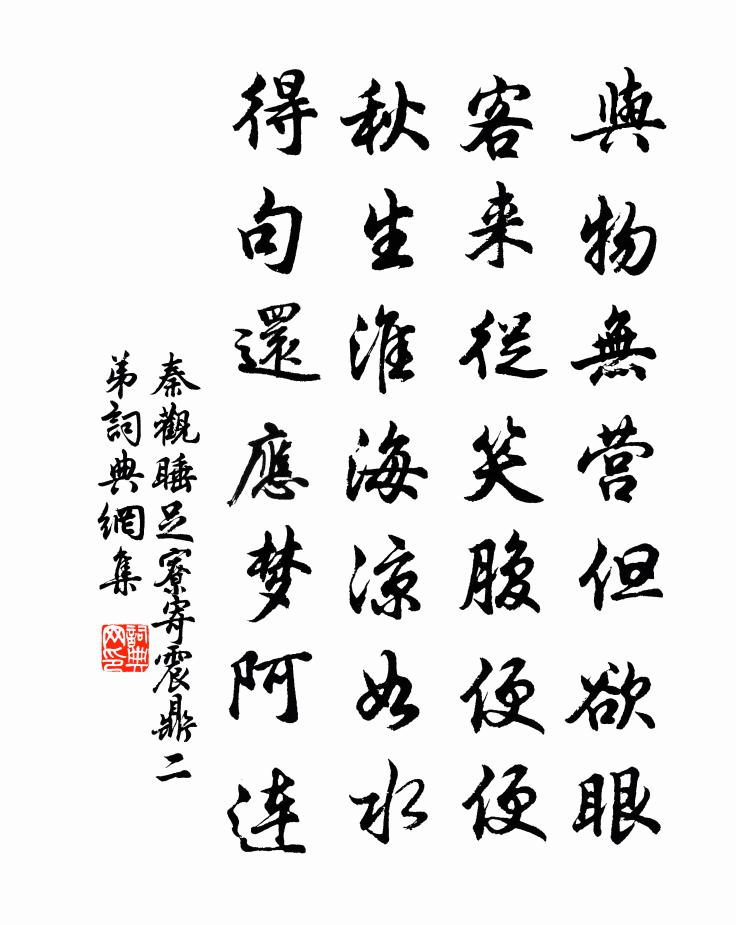 與物無营但欲眼
客来從笑腹便便
秋生淮海凉如水
得句還應梦阿連
秦觀睡足寮寄震鼎二
弟詞典網集
詞典
网印